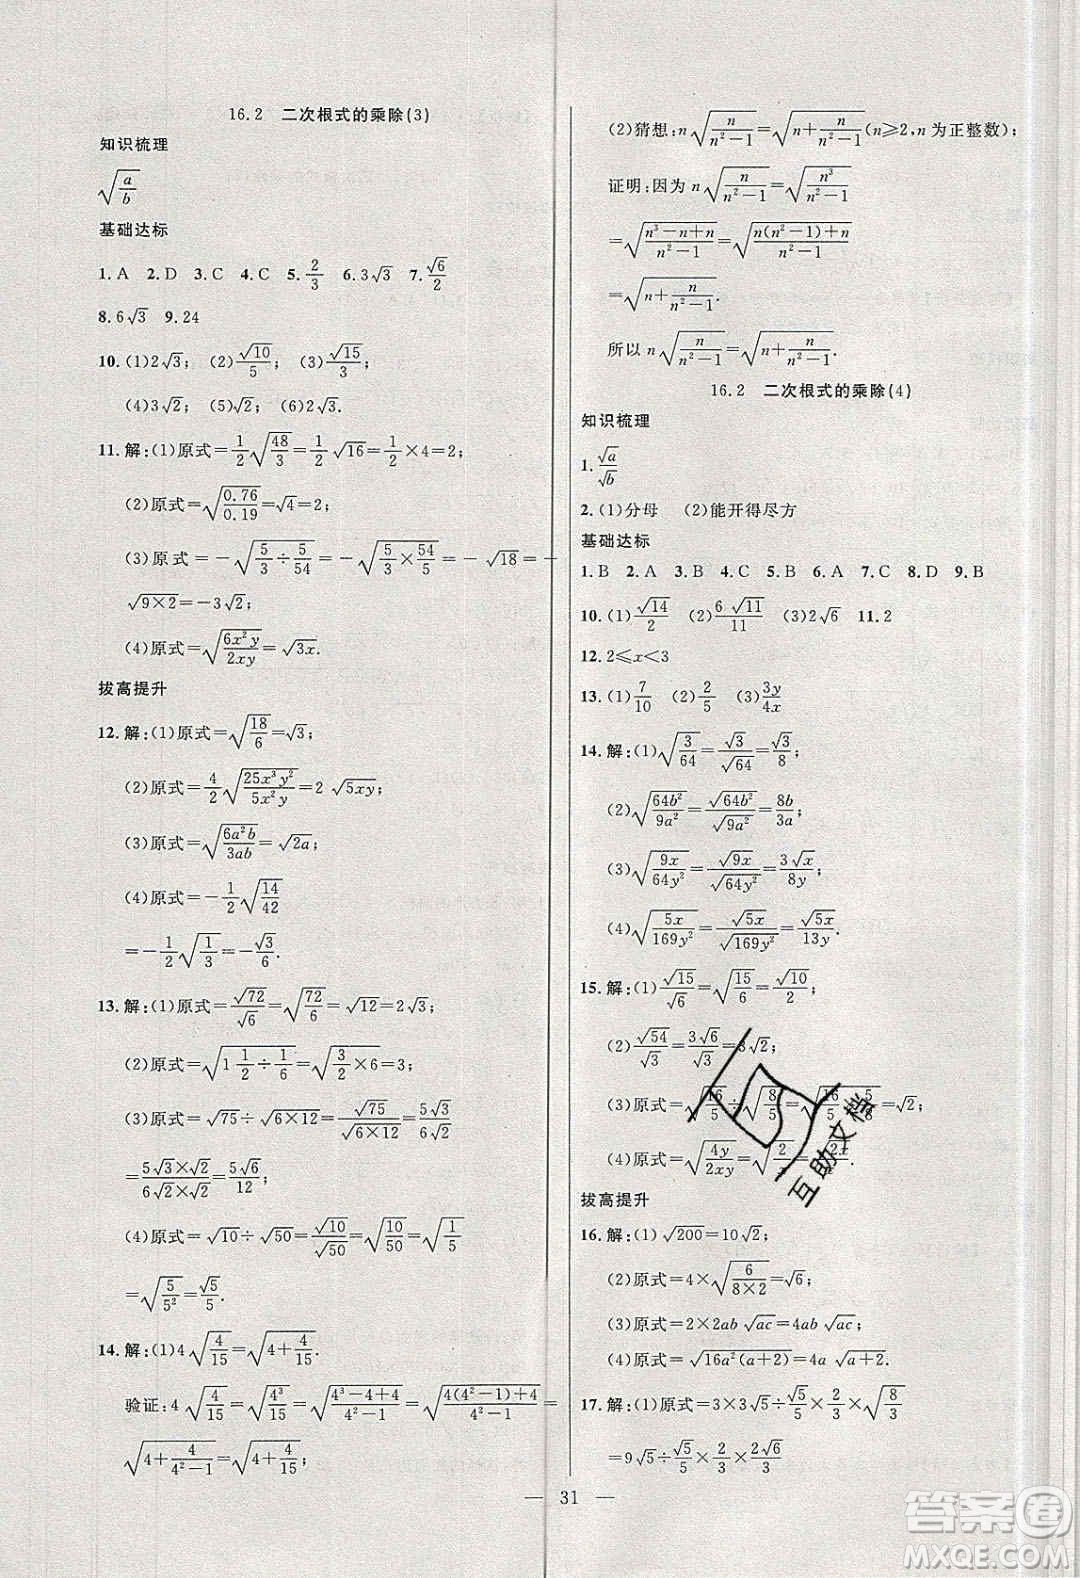 16.2 二次根式的乘除(3)
知识梳理
√(a/b)
基础达标
1.A 2.D 3.C 4.C 5.2/3 6.3√3 7.√6/2
8.6√3 9.24
10.(1)2√3; (2)√10/5; (3)√15/3;
(4)3√2; (5)√2; (6)2√2.
11.解:(1)原式=1/2√(48/3)=1/2√16=1/2×4=2;
(2)原式=√(0.76/0.19)=√4=2;
(3)原式=-√(5/3÷5/54)=-√(5/3×54/5)=-√18=-
√(9×2)=-3√2;
(4)原式=√(6x²y/2xy)=√3x.
拔高提升
12.解:(1)原式=√(18/6)=√3;
(2)原式=4/2√(25x³y²/5x²y)=2√5xy;
(3)原式=√(6a²b/3ab)=√2a;
(4)原式=-1/2√(14/42)
=-1/2√(1/3)=-√3/6.
13.解:(1)原式=√72/√6=√(72/6)=√12=2√3;
(2)原式=√(1 1/2÷1/6)=√(3/2×6)=3;
(3)原式=√75÷√(6×12)=√75/√(6×12)=5√3/6√2
=5√3×√2/6√2×√2=5√6/12;
(4)原式=√10÷√50=√10/√50=√(10/50)=√(1/5)
=√(5/5²)=√5/5.
14.解:(1)4√(4/15)=√(4+4/15).
验证:4√(4/15)=√(4³/15)=√((4³-4+4)/(4²-1))=√((4(4²-1)+4)/(4²-1))=
√(4+4/(4²-1))=√(4+4/15).
(2)猜想:n√(n/(n²-1))=√(n+n/(n²-1))(n≥2,n为正整数);
证明:因为n√(n/(n²-1))=√(n³/(n²-1))
=√((n³-n+n)/(n²-1))=√((n(n²-1)+n)/(n²-1))
=√(n+n/(n²-1)).
所以n√(n/(n²-1))=√(n+n/(n²-1)).
16.2 二次根式的乘除(4)
知识梳理
1.√a/√b
2.(1)分母 (2)能开得尽方
基础达标
1.B 2.A 3.B 4.C 5.B 6.A 7.C 8.D 9.B
10.(1)√14/2 (2)6√11/11 (3)2√6 11.2
12.2≤x<3
13.(1)7/10 (2)2/5 (3)3y/4x
14.解:(1)√(3/64)=√3/√64=√3/8;
(2)√(64b²/9a²)=√64b²/√9a²=8b/3a;
(3)√(9x/64y²)=√9x/√64y²=3√x/8y;
(4)√(5x/169y²)=√5x/√169y²=√5x/13y.
15.解:(1)√15/√6=√(15/6)=√10/2;
(2)√54/√3=3√6/√3=3√2;
(3)原式=√(16/5)÷√(8/5)=√(16/5×5/8)=√2;
(4)原式=√(4y/2xy)=√(2/x)=√2x/x.
拔高提升
16.解:(1)√200=10√2;
(2)原式=4×√(6/(8×2))=√6;
(3)原式=2×2ab√ac=4ab√ac;
(4)原式=√(16a²(a+2))=4a√(a+2).
17.解:(1)原式=3×3√5÷√5/5×2/3×√(8/3)
=9√5÷√5/5×2/3×2√6/3
31
互助文档
答案圈
MXQE.COM